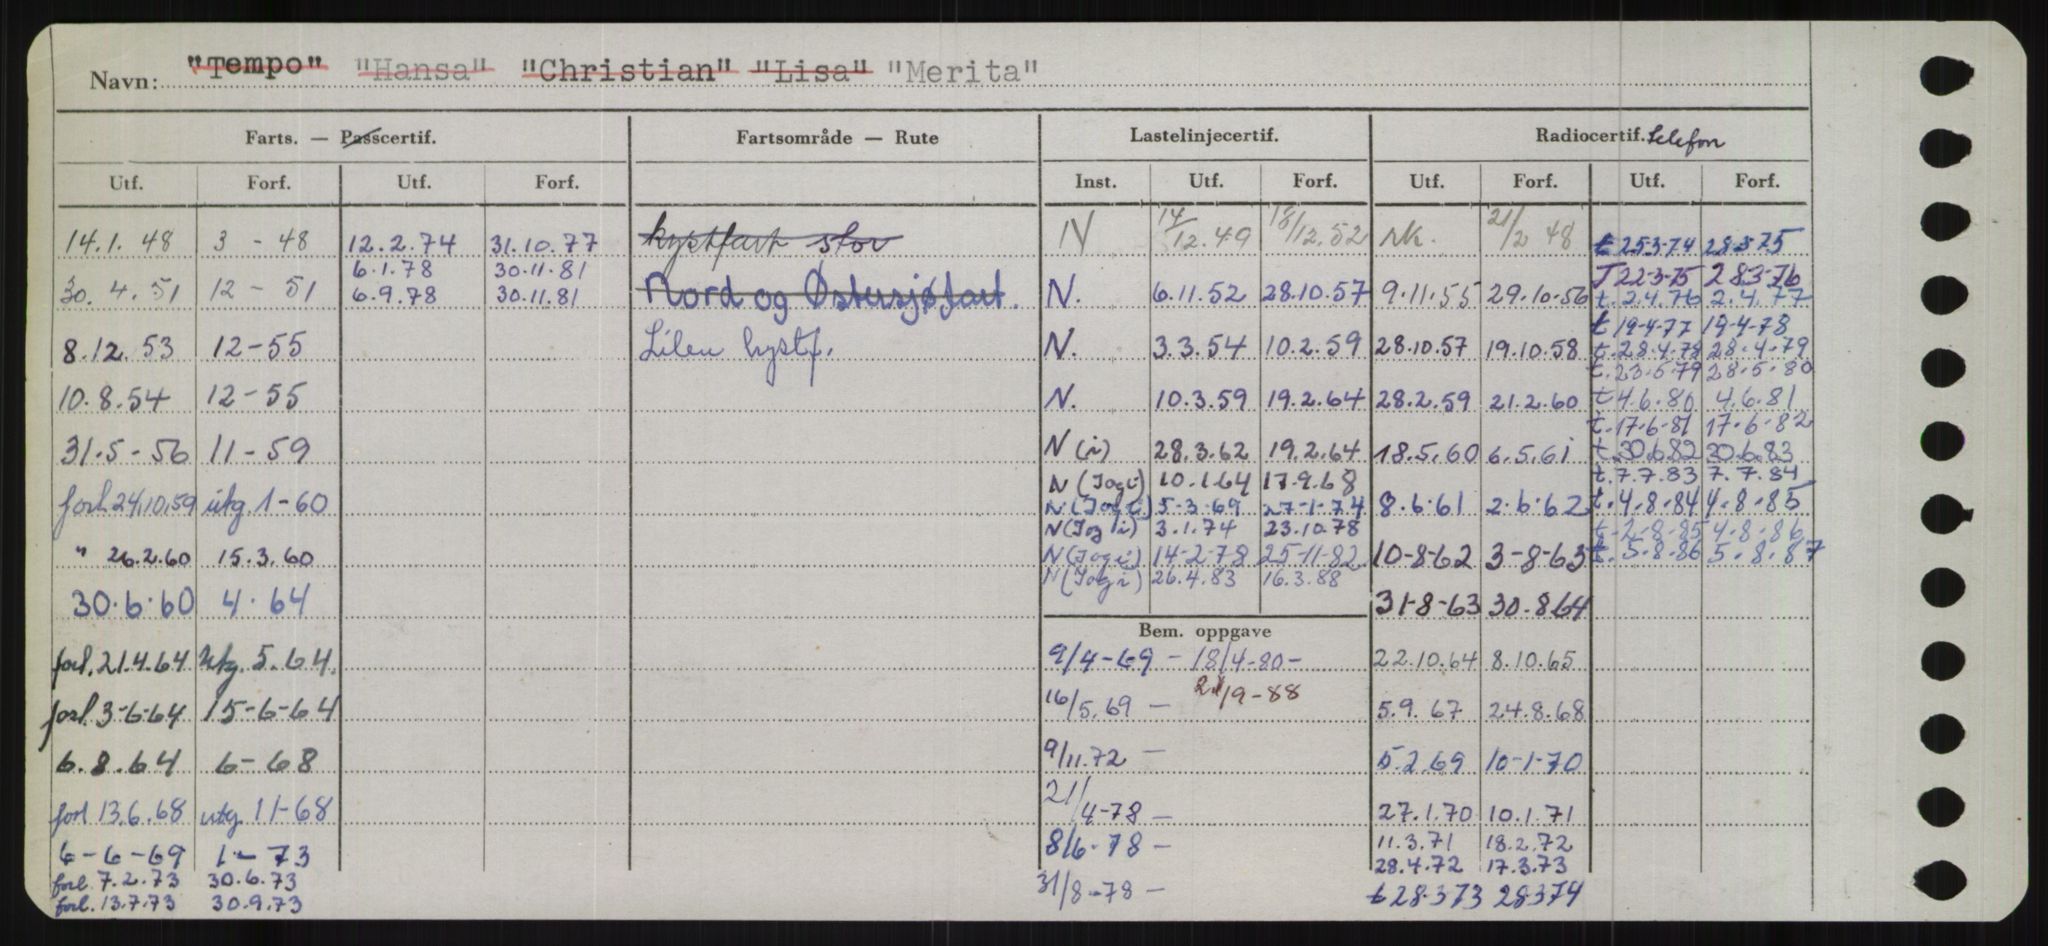 Navn: "Tempo" "Hansa" "Christian" "Lisa" "Merita"
Farts. — Passcertif.
Utf. Forf. Utf. Forf.
14.1.48 3 - 48 12.2.74 31.10.77
6.1.78 30.11.81
30.4.51 12 - 51 6.9.78 30.11.81
8.12.53 12-55
10.8.54 12-55
31.5-56 11-59
forl 24.10.59 utg. 1-60
" 26.2.60 15.3.60
30.6.60 4.64
forl. 21.4.64 utg. 5.64.
forl. 3-6-64 15-6-64
6.8.64 6-68
forl 13.6.68 utg 11-68
6-6-69 1-73
forl. 7.2.73 30.6.73
forl. 13.7.73 30.9.73
Fartsområde — Rute
kystfart stor
Nord og Østersjøfart.
Liten kystf.
Lastelinjecertif.
Inst. Utf. Forf.
N 14/12.49 18/12.52
N. 6.11.52 28.10.57
N. 3.3.54 10.2.59
N. 10.3.59 19.2.64
N (i) 28.3.62 19.2.64
N (Iogi) 10.1.64 17.9.68
N (Iogi) 5-3-69 27-1-74
N (Iogi) 3.1.74 23.10.78
N (Iogi) 14-2-78 25-11-82
N (Iogi) 26.4.83 16.3.88
Bem. oppgave
9/4-69 - 18/4-80-
16/5.69 - 21/9-88
9/11.72 -
21/4-78 -
8/6-78 -
31/8-78 -
Radiocertif. telefon
Utf. Forf. Utf. Forf.
rk. 21/2 48
9.11.55 29.10.56
28.10.57 19.10.58
28.2.59 21.2.60
18.5.60 6.5.61
8.6.61 2.6.62
10-8-62 3-8-63
31-8-63 30.8.64
22.10.64 8.10.65
5.9.67 24.8.68
5.2.69 10-1-70
27.1.70 10.1.71
11.3.71 18.2.72
28.4.72 17.3.73
t 28.3.73 28.3.74
t 25.3.74 28.3.75
T 22-3-75 28.3.76
t. 2.4.76 2.4.77
t 19-4-77 19-4-78
t. 28.4.78 28.4.79
t. 23.5.79 28.5.80
t 4.6.80 4.6.81
t. 17-6-81 17-6-82
t. 30.6.82 30.6.83
t. 7.7.83 7.7.84
t. 4.8.84 4.8.85
t. 2.8.85 4.8.86
t. 5.8.86 5.8.87